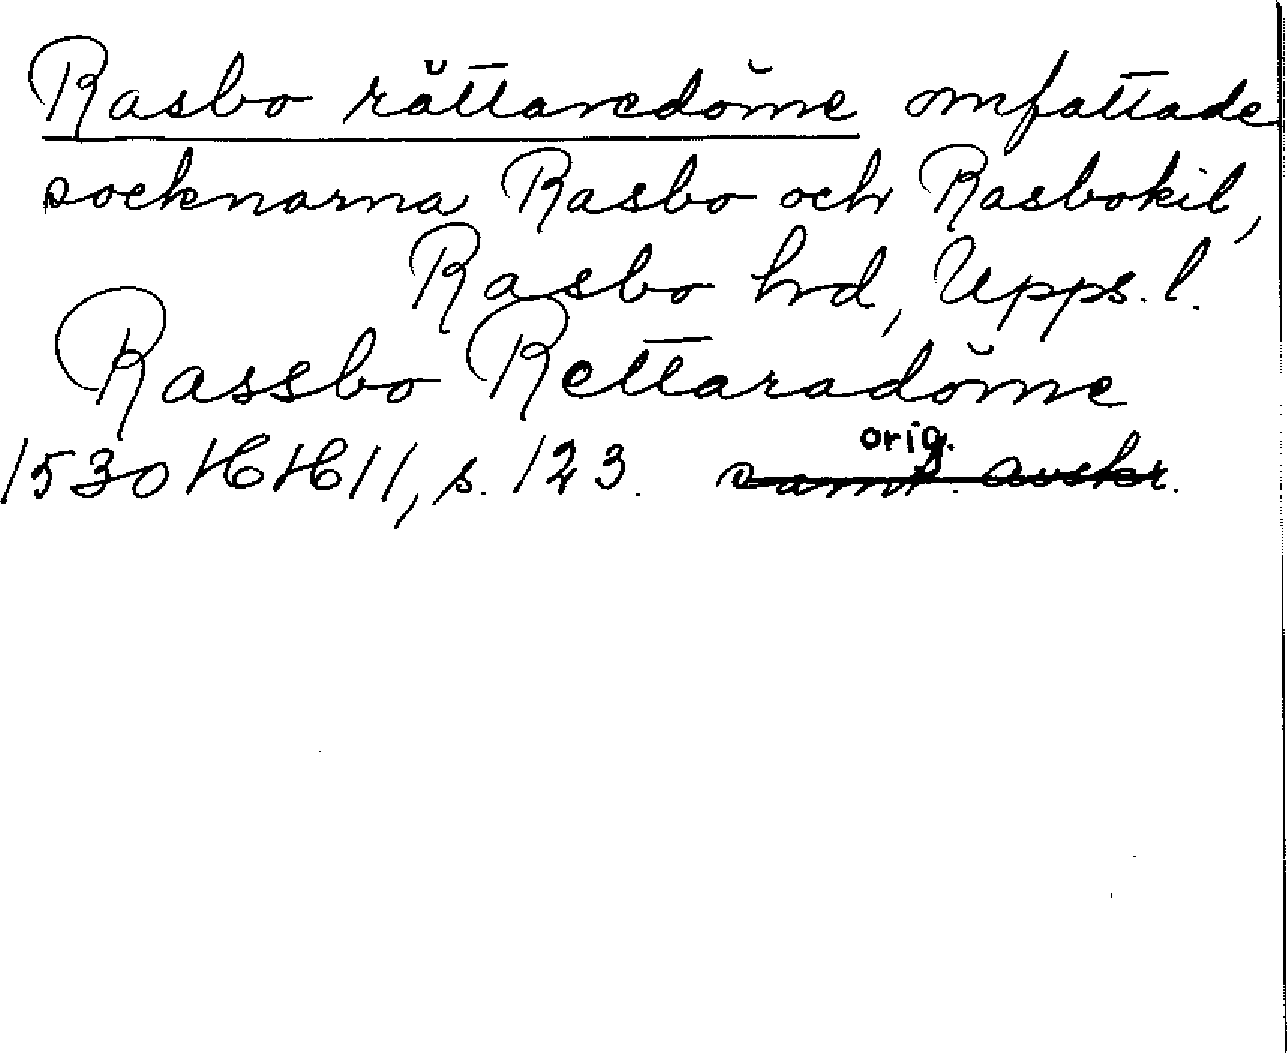 Rasbo rättaredöme omfattade
socknarna Rasbo och Rasbokil,
Rasbo hd, Upps. l.
Rassbo Rettaradöme
orig.
1530 HH 11, s. 123. samt. avskr.